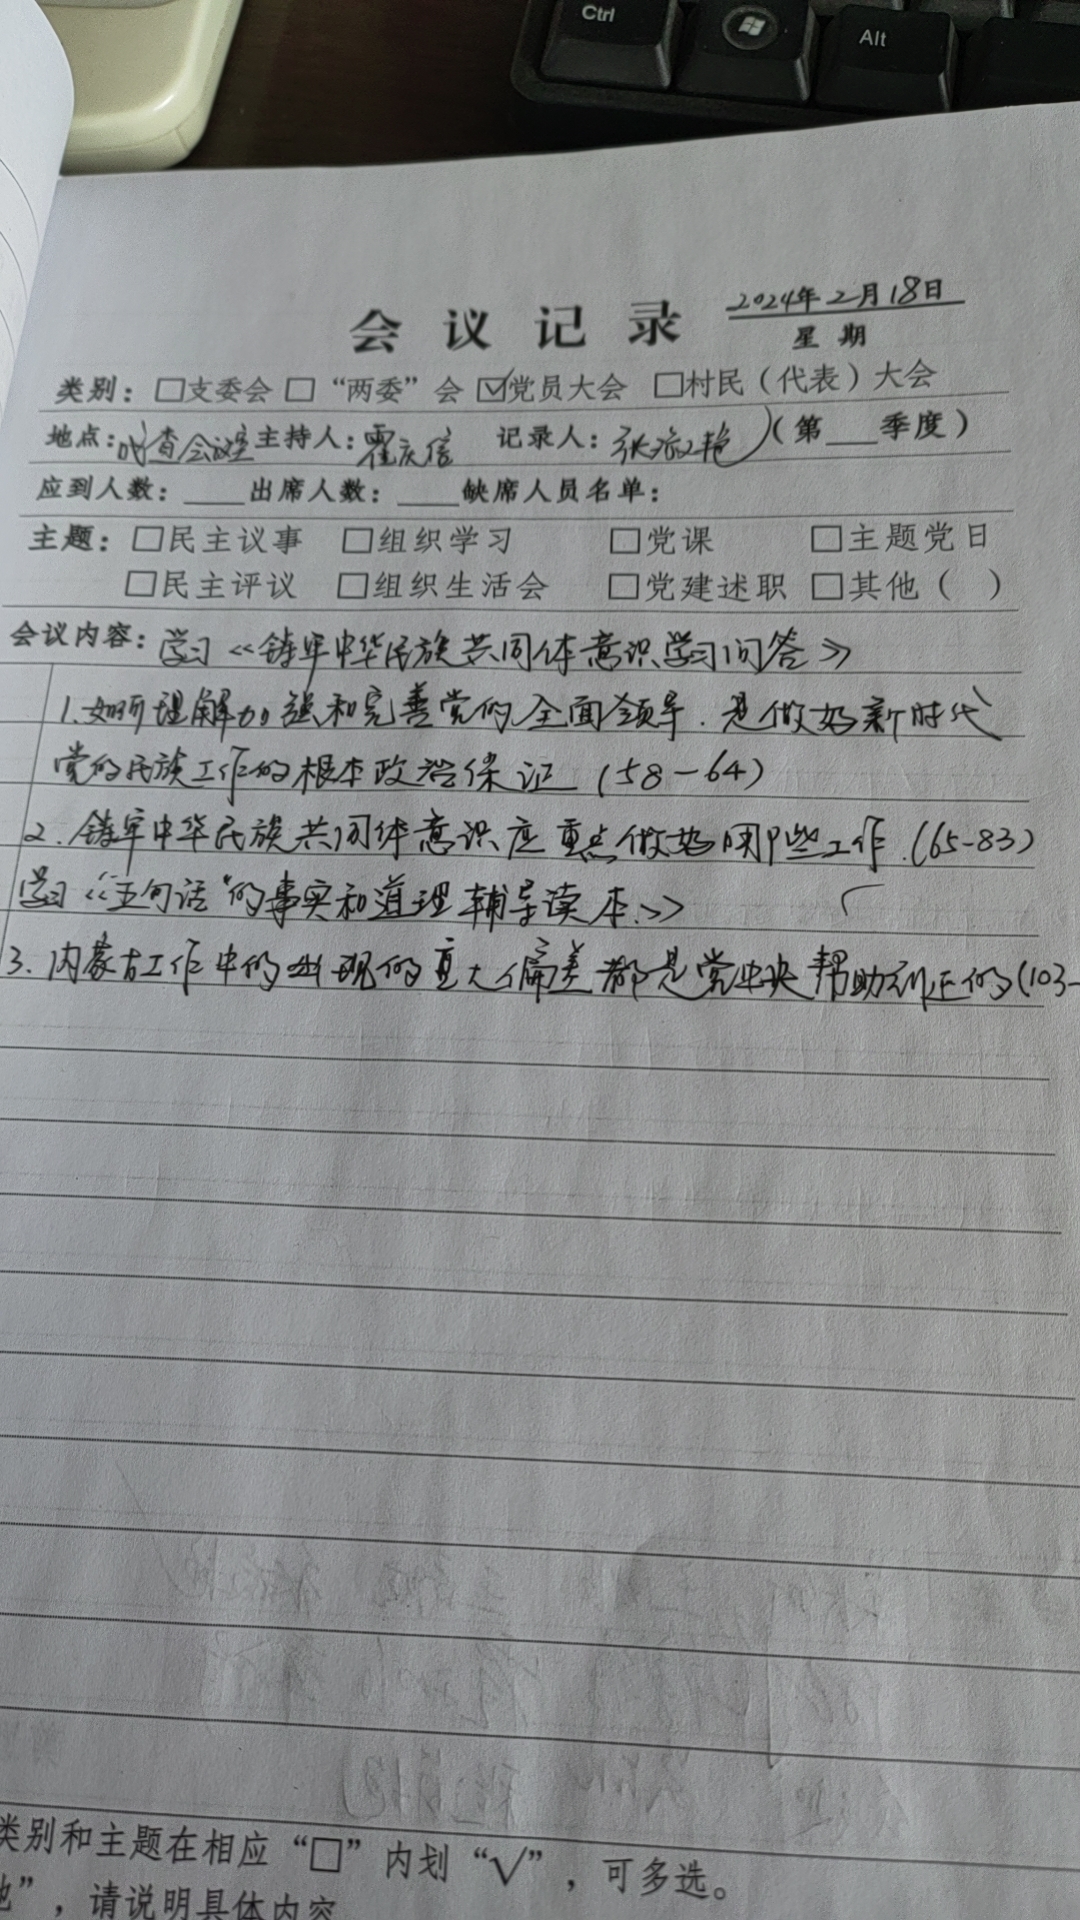 Ctrl
Alt
2024年2月18日
会议记录
星期
类别：□支委会 □“两委”会 ☑党员大会 □村民（代表）大会
地点：会议室 主持人：霍庆信 记录人：张 艳（第___季度）
应到人数：____出席人数：____缺席人员名单：
主题：□民主议事 □组织学习 □党课 □主题党日
□民主评议 □组织生活会 □党建述职 □其他（ ）
会议内容：学习《铸牢中华民族共同体意识学习问答》
1.如何理解加强和完善党的全面领导.是做好新时代
党的民族工作的根本政治保证 (58-64)
2.铸牢中华民族共同体意识应重点做好哪些工作.(65-83)
学习《“五句话”的事实和道理辅导读本.》
3.内蒙古工作中的出现的重大偏差都是党中央帮助纠正的(103-
类别和主题在相应“□”内划“√”，可多选。
他”，请说明具体内容